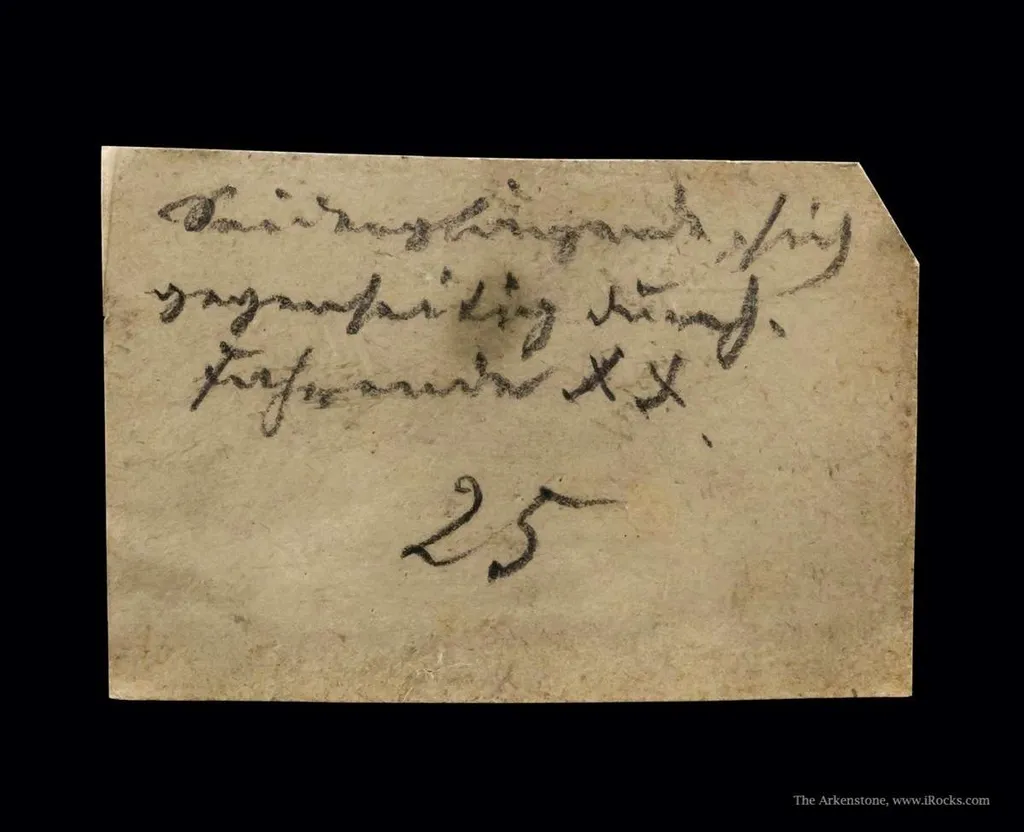 Seidenglänzende, sich
gegenseitig durch-
setzende XX
25
The Arkenstone, www.iRocks.com